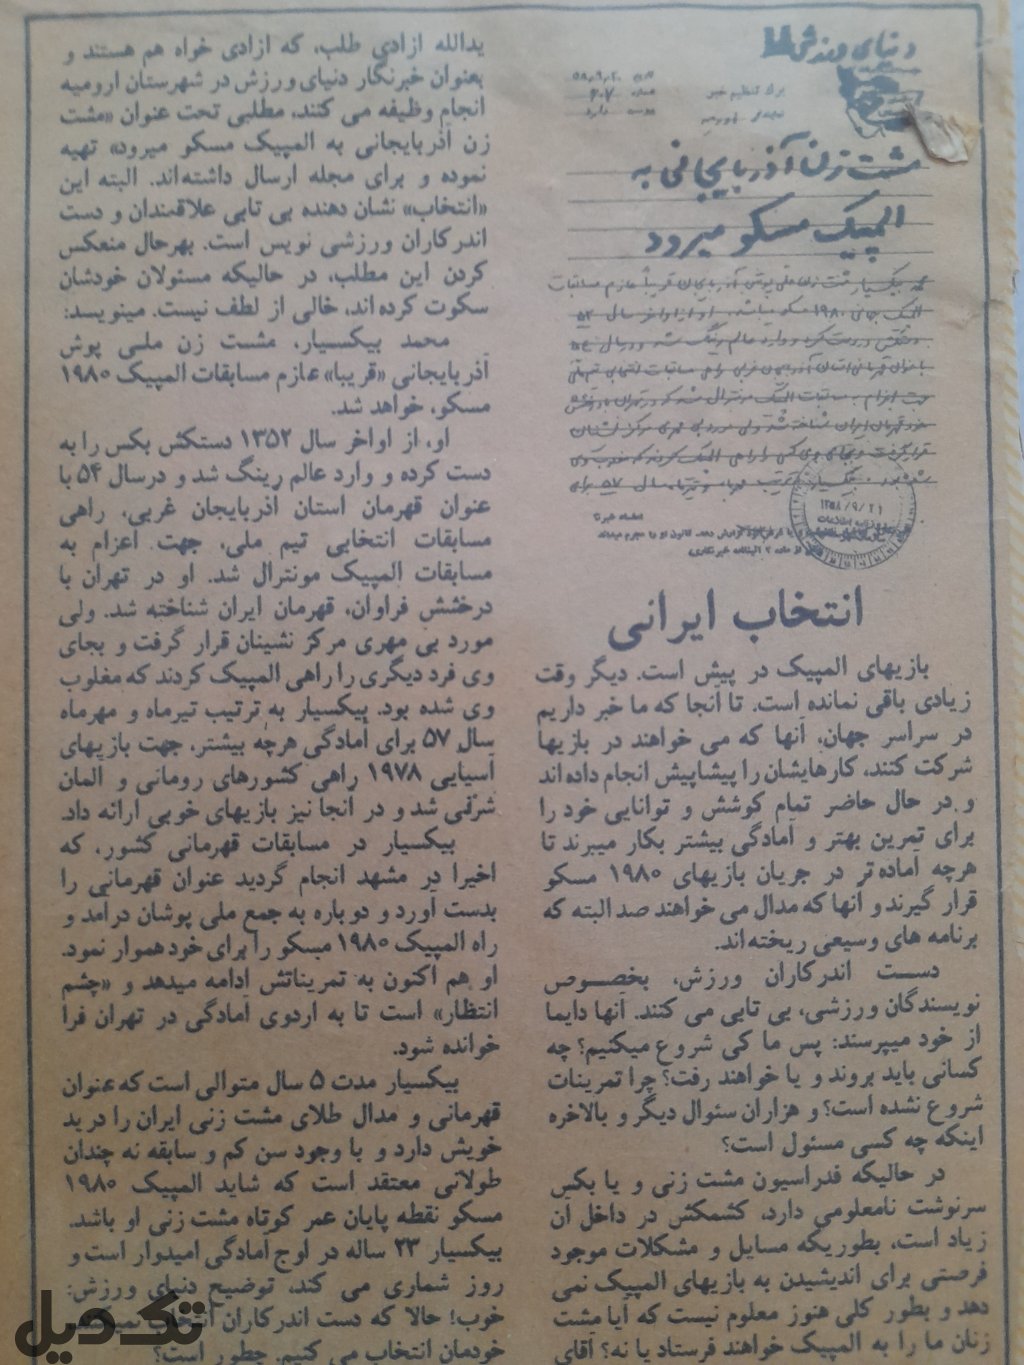 دنیای ورزش
مشت زن آذربایجانی به
المپیک مسکو میرود
۱۳۵۸/۹/۲۱
انتخاب ایرانی
بازیهای المپیک در پیش است. دیگر وقت
زیادی باقی نمانده است. تا آنجا که ما خبر داریم
در سراسر جهان، آنها که می خواهند در بازیها
شرکت کنند، کارهایشان را پیشاپیش انجام داده اند
و در حال حاضر تمام کوشش و توانایی خود را
برای تمرین بهتر و آمادگی بیشتر بکار میبرند تا
هرچه آماده تر در جریان بازیهای ۱۹۸۰ مسکو
قرار گیرند و آنها که مدال می خواهند صد البته که
برنامه های وسیعی ریخته اند.
دست اندرکاران ورزش، بخصوص
نویسندگان ورزشی، بی تابی می کنند. آنها دایما
از خود میپرسند: پس ما کی شروع میکنیم؟ چه
کسانی باید بروند و یا خواهند رفت؟ چرا تمرینات
شروع نشده است؟ و هزاران سئوال دیگر و بالاخره
اینکه چه کسی مسئول است؟
در حالیکه فدراسیون مشت زنی و یا بکس
سرنوشت نامعلومی دارد، کشمکش در داخل آن
زیاد است، بطوریکه مسایل و مشکلات موجود
فرصتی برای اندیشیدن به بازیهای المپیک نمی
دهد و بطور کلی هنوز معلوم نیست که آیا مشت
زنان ما را به المپیک خواهند فرستاد یا نه؟ آقای
یدالله آزادی طلب، که آزادی خواه هم هستند و
بعنوان خبرنگار دنیای ورزش در شهرستان ارومیه
انجام وظیفه می کنند، مطلبی تحت عنوان «مشت
زن آذربایجانی به المپیک مسکو میرود» تهیه
نموده و برای مجله ارسال داشته اند. البته این
«انتخاب» نشان دهنده بی تابی علاقمندان و دست
اندرکاران ورزشی نویس است. بهرحال منعکس
کردن این مطلب، در حالیکه مسئولان خودشان
سکوت کرده اند، خالی از لطف نیست. مینویسد:
محمد بیکسیار، مشت زن ملی پوش
آذربایجانی «قریبا» عازم مسابقات المپیک ۱۹۸۰
مسکو، خواهد شد.
او، از اواخر سال ۱۳۵۲ دستکش بکس را به
دست کرده و وارد عالم رینگ شد و درسال ۵۴ با
عنوان قهرمان استان آذربایجان غربی، راهی
مسابقات انتخابی تیم ملی، جهت اعزام به
مسابقات المپیک مونترال شد. او در تهران با
درخشش فراوان، قهرمان ایران شناخته شد. ولی
مورد بی مهری مرکز نشینان قرار گرفت و بجای
وی فرد دیگری را راهی المپیک کردند که مغلوب
وی شده بود. بیکسیار به ترتیب تیرماه و مهرماه
سال ۵۷ برای آمادگی هرچه بیشتر، جهت بازیهای
آسیایی ۱۹۷۸ راهی کشورهای رومانی و آلمان
شرقی شد و در آنجا نیز بازیهای خوبی ارائه داد.
بیکسیار در مسابقات قهرمانی کشور، که
اخیرا در مشهد انجام گردید عنوان قهرمانی را
بدست آورد و دوباره به جمع ملی پوشان درآمد و
راه المپیک ۱۹۸۰ مسکو را برای خود هموار نمود.
او هم اکنون به تمریناتش ادامه میدهد و «چشم
انتظار» است تا به اردوی آمادگی در تهران فرا
خوانده شود.
بیکسیار مدت ۵ سال متوالی است که عنوان
قهرمانی و مدال طلای مشت زنی ایران را در ید
خویش دارد و با وجود سن کم و سابقه نه چندان
طولانی معتقد است که شاید المپیک ۱۹۸۰
مسکو نقطه پایان عمر کوتاه مشت زنی او باشد.
بیکسیار ۲۳ ساله در اوج آمادگی امیدوار است و
روز شماری می کند، توضیح دنیای ورزش:
خوب! حالا که دست اندرکاران انتخاب نمیکنند
خودمان انتخاب می کنیم. چطور است؟
تک دیل